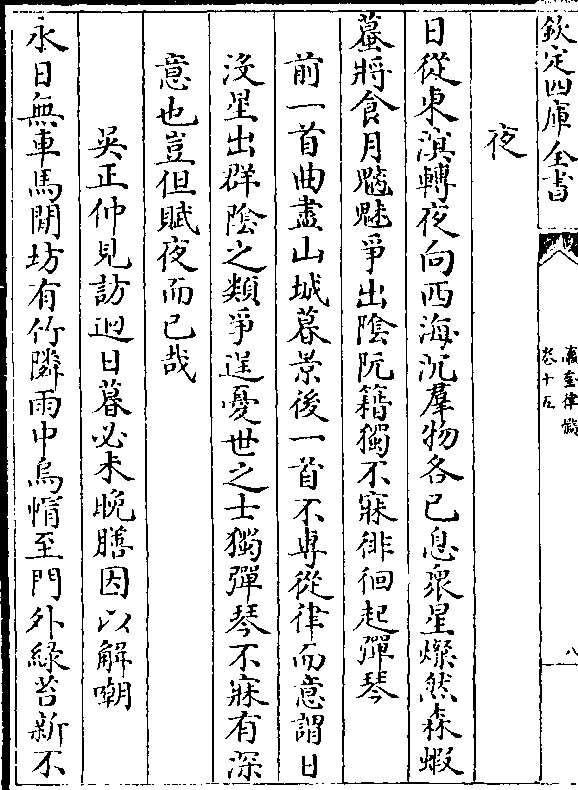 欽定四庫全書
瀛奎律髓
卷十五
八
夜
日從東溟轉夜向西海沉羣物各已息衆星燦然森蝦
蟇將食月魑魅爭出陰阮籍獨不寐徘徊起彈琴
前一首曲盡山城暮景後一首不專從律而意謂日
没星出群陰之類爭逞憂世之士獨彈琴不寐有深
意也豈但賦夜而已哉
吳正仲見訪迴日暮必未晚膳因以解嘲
永日無車馬閒坊有竹隣雨中烏幘至門外緑苔新不